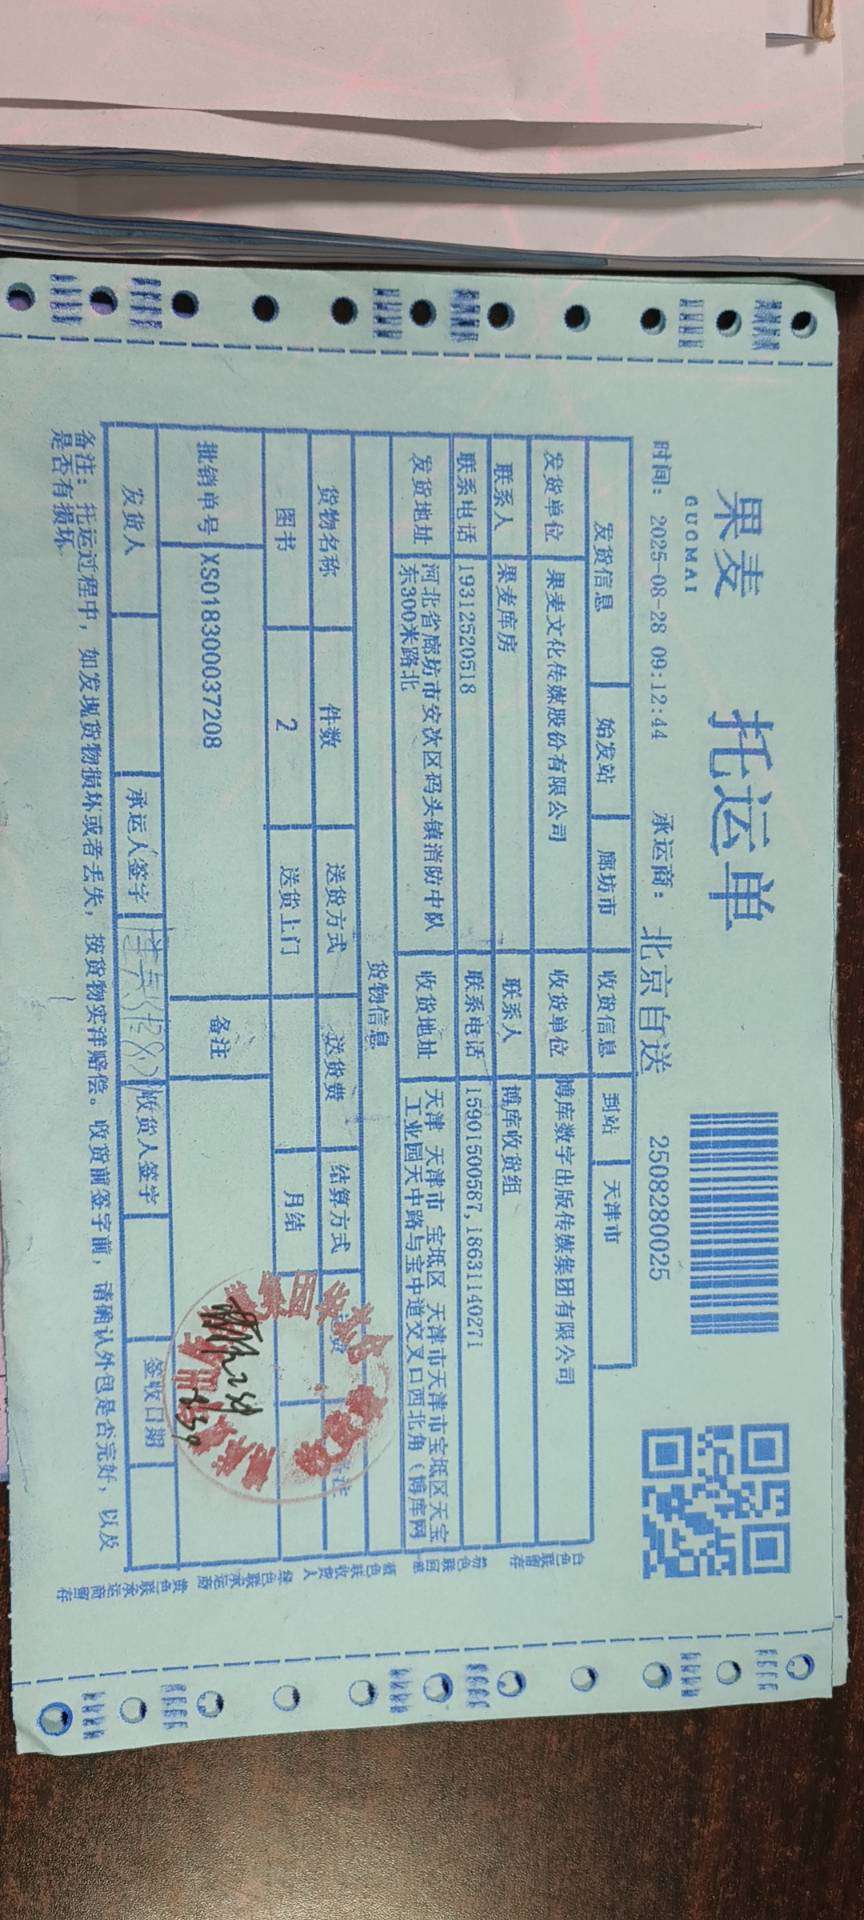 果麦
GUOMAI
托运单
时间: 2025-08-28 09:12:44 承运商: 北京自送 2508280025
发货信息 始发站 廊坊市 收货信息 到站 天津市
发货单位 果麦文化传媒股份有限公司 收货单位 博库数字出版传媒集团有限公司
联系人 果麦库房 联系人 博库收货组
联系电话 19312520518 联系电话 15901500587,18631140271
发货地址 河北省廊坊市安次区码头镇消防中队东300米路北 收货地址 天津 天津市 宝坻区 天津市天津市宝坻区天宝工业园天中路与宝中道交叉口西北角(博库网
货物信息
货物名称 件数 送货方式 送货费 结算方式
图书 2 送货上门 月结
批销单号 XS018300037208 备注
发货人 承运人签字 收货人签字 签收日期
备注: 托运过程中, 如发现货物损坏或者丢失, 按货物实洋赔偿。收货前签字前, 请确认外包是否完好, 以及
是否有损坏.